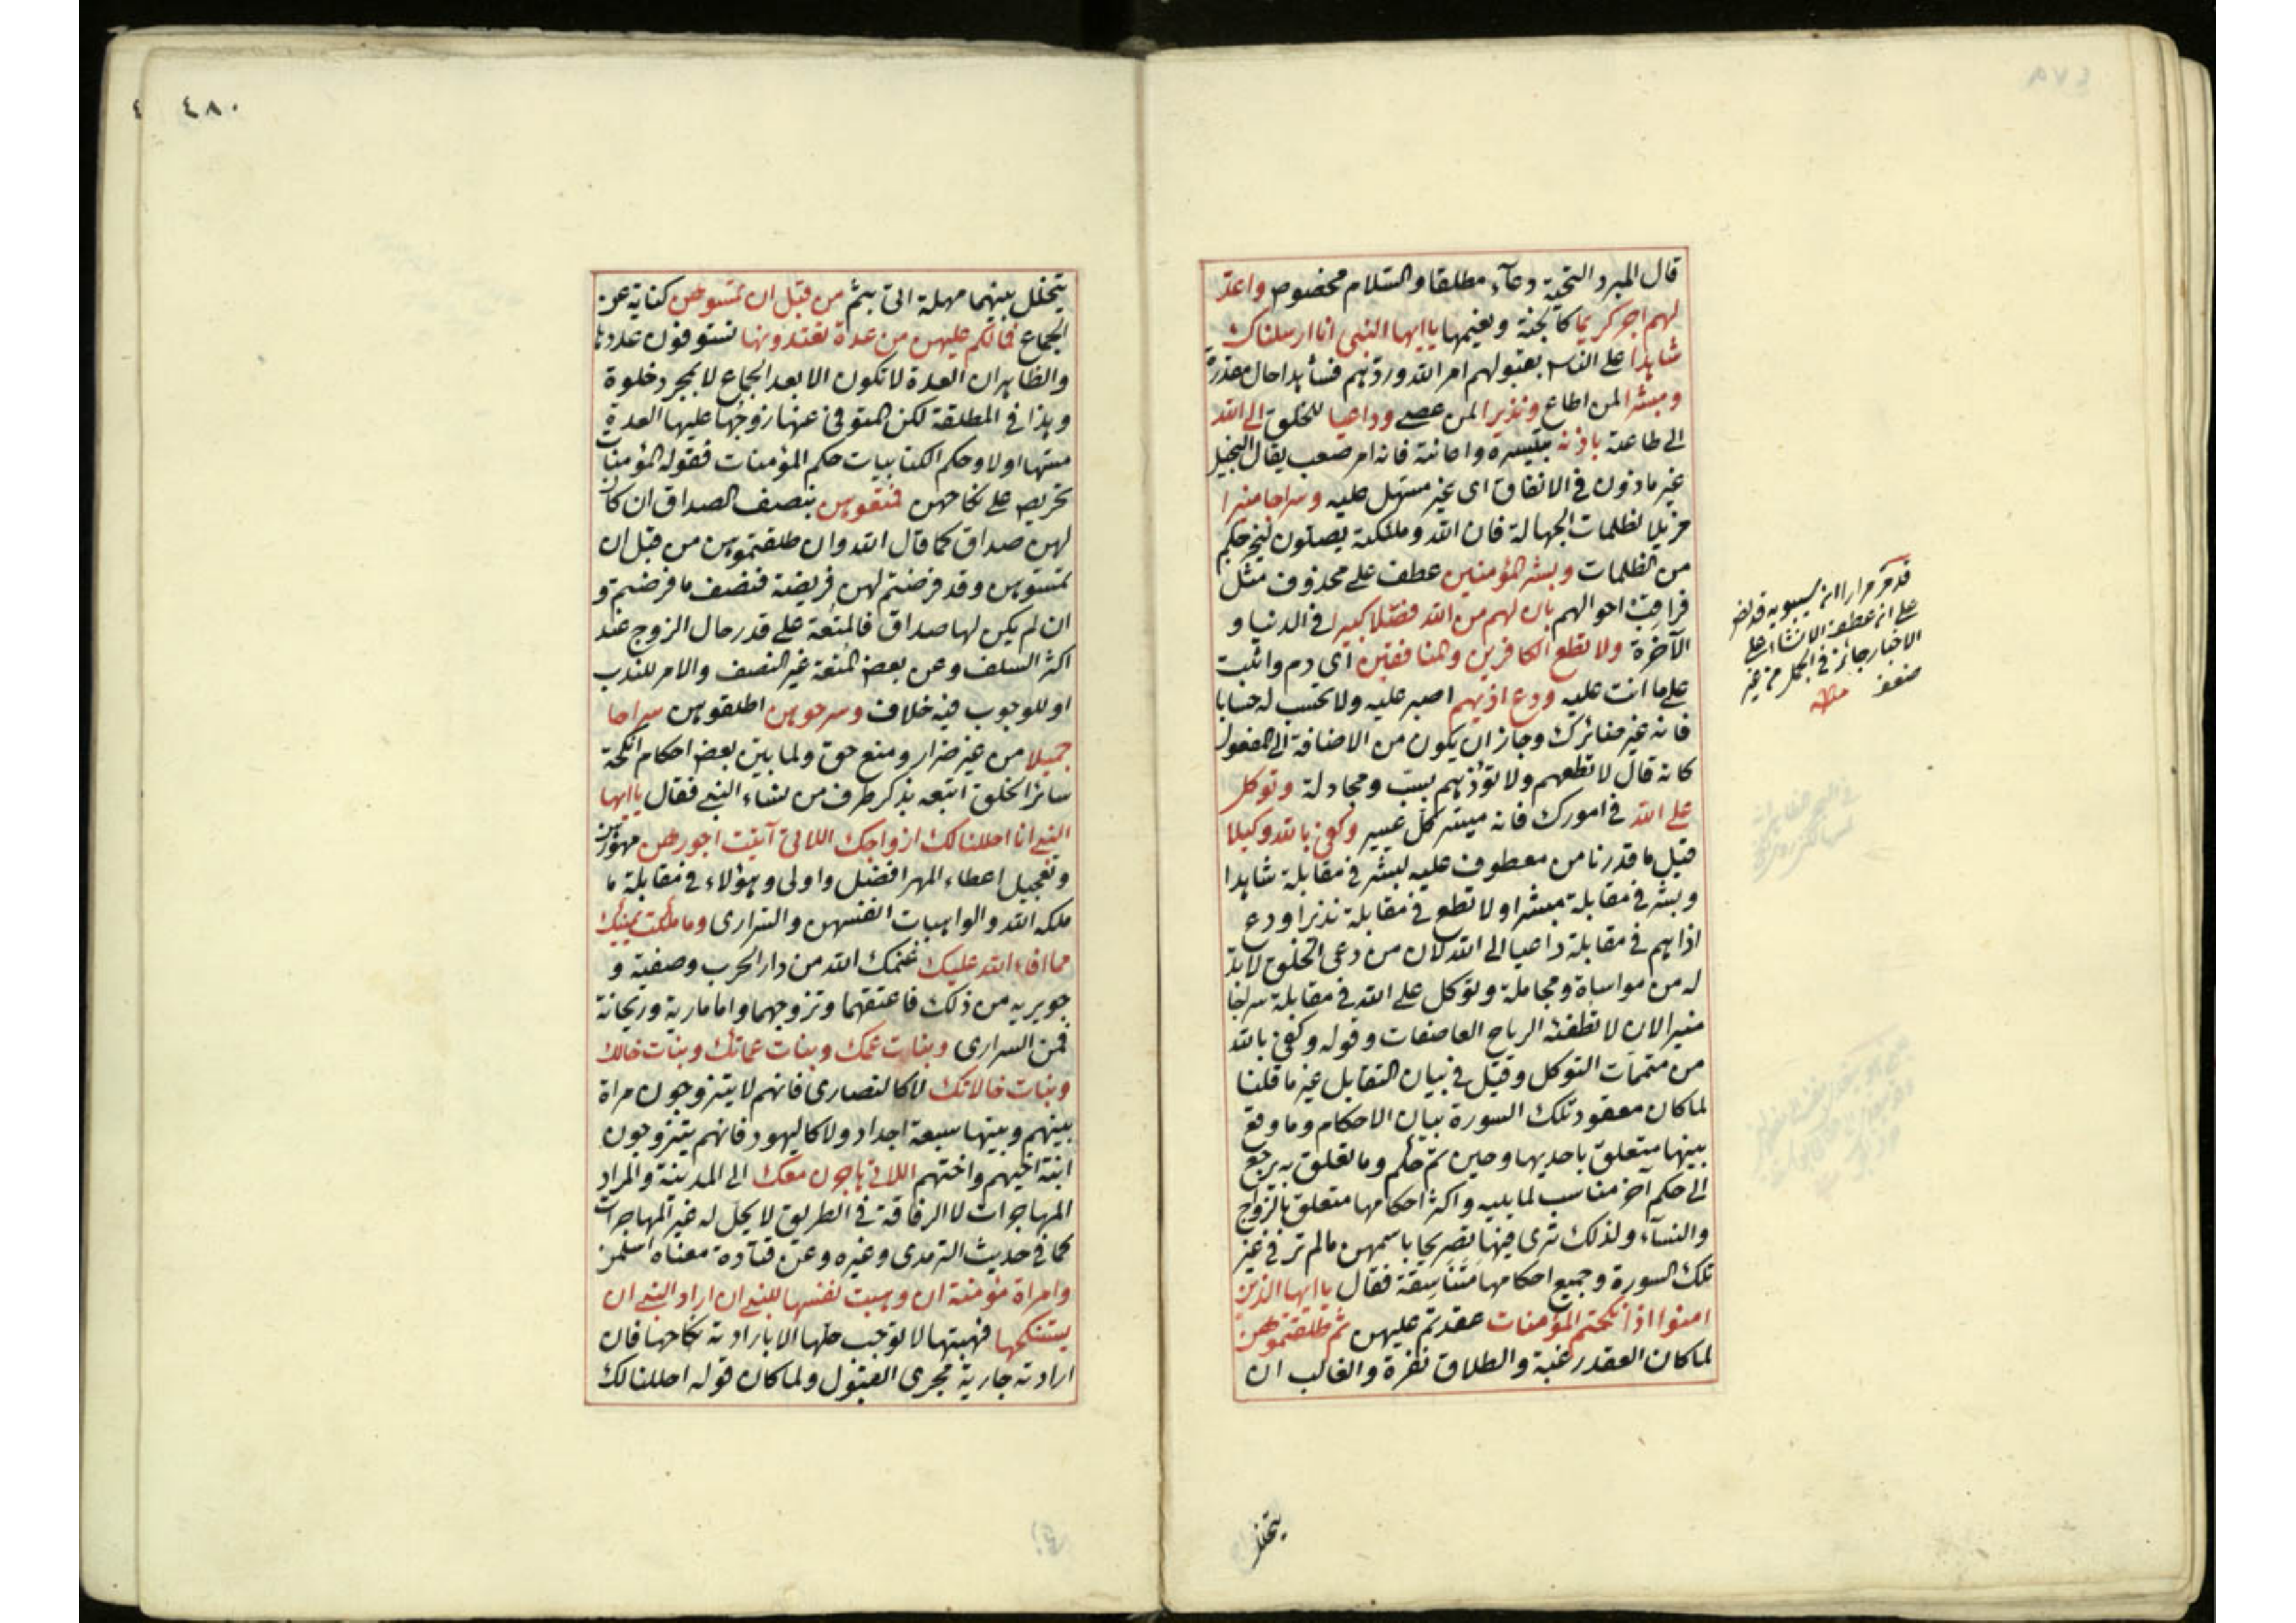 قال المبرد التحية دعاء مطلقا والسلام مخصوص واعد
لهم اجر كريما كالجنة ونعيمها ياايها النبي انا ارسلناك
شاهدا على الناس بقبولهم امر الله وردهم فشاهدا حال مقدرة
ومبشرا لمن اطاع ونذيرا لمن عصى وداعيا للخلق الى الله
الى طاعته باذنه بتيسيره واعانته فانه امر صعب يقال البخيل
غير ماذون في الانفاق اى غير مسهل عليه وسراجا منيرا
مزيلا لظلمات الجهالة فان الله وملئكته يصلون ليخرجكم
من الظلمات وبشر المؤمنين عطف على محذوف مثل
فراقب احوالهم بان لهم من الله فضلا كبيرا في الدنيا و
الآخرة ولا تطع الكافرين والمنافقين اى دم واثبت
على ما انت عليه ودع اذيهم اصبر عليه ولا تحتسب له حسابا
فانه غير ضائرك وجاز ان يكون من الاضافة الى المفعول
كانه قال لا تطعهم ولا تؤذيهم بسبّ ومجادلة وتوكل
على الله في امورك فانه ميسر كل عسير وكفى بالله وكيلا
قيل ما قدرنا من معطوف عليه لبشر في مقابلة شاهدا
وبشر في مقابلة مبشرا ولا تطع في مقابلة نذيرا ودع
اذاهم في مقابلة داعيا الى الله لان من دعى الخلق لا بد
له من مواساة ومجاملة وتوكل على الله في مقابلة سراجا
منيرا لان لا تطفئه الرياح العاصفات وقوله وكفى بالله
من متممات التوكل وقيل في بيان التقابل غير ما قلنا
لما كان معقود تلك السورة بيان الاحكام وما وقع
بينها متعلق باحديها وحين تم حكم وما تعلق به يرجع
الى حكم آخر مناسب لما يليه واكثر احكامها متعلق بالزواج
والنسآء ولذلك ترى فيها تصريحا باسمهن مالم تر في غير
تلك السورة وجميع احكامها متناسقة فقال ياايها الذين
امنوا اذا نكحتم المؤمنات عقدتم عليهن ثم طلقتموهن
لما كان العقد رغبة والطلاق نفرة والغالب ان
يتخلل
قد مر مرارا ان سيبويه قد نص
على ان عطف الانشاء على
الاخبار جائز في الجمل من غير
ضعف منه
٤٨٠
يتخلل بينهما مهلة اتى بثم من قبل ان تمسوهن كناية عن
الجماع فمالكم عليهن من عدة تعتدونها تستوفون عددها
والظاهر ان العدة لا تكون الا بعد الجماع لا بمجرد خلوة
وهذا في المطلقة لكن المتوفى عنها زوجها عليها العدة
مسها اولا وحكم الكتابيات حكم المؤمنات فقوله المؤمنات
تحريص على نكاحهن فمتعوهن بنصف الصداق ان كان
لهن صداق كما قال الله وان طلقتموهن من قبل ان
تمسوهن وقد فرضتم لهن فريضة فنصف ما فرضتم و
ان لم يكن لها صداق فالمتعة على قدر حال الزوج عند
اكثر السلف وعن بعض المتعة غير النصف والامر للندب
او للوجوب فيه خلاف وسرحوهن اطلقوهن سراحا
جميلا من غير ضرار ومنع حق ولما بين بعض احكام انكحة
سائر الخلق اتبعه بذكر طرف من نساء النبي فقال ياايها
النبي انا احللنا لك ازواجك اللاتى آتيت اجورهن مهورهن
وتعجيل اعطاء المهر افضل واولى وهؤلاء في مقابلة ما
ملكه الله والواهبات انفسهن والسرارى وما ملكت يمينك
مما افاء الله عليك غنمك الله من دار الحرب وصفية و
جويرية من ذلك فاعتقهما وتزوجهما واما مارية وريحانة
فمن السرارى وبنات عمك وبنات عماتك وبنات خالك
وبنات خالاتك لا كالنصارى فانهم لا يتزوجون مراة
بينهم وبينها سبعة اجداد ولا كاليهود فانهم يتزوجون
ابنة اخيهم واختهم اللاتى هاجرن معك الى المدينة والمراد
المهاجرات لا الرفاقة في الطريق لا يحل له غير المهاجرات
كما في حديث الترمذى وغيره وعن قتادة معناه اسلمن
وامراة مؤمنة ان وهبت نفسها للنبي ان اراد النبي ان
يستنكحها فهبتها لا توجب حلها الا بارادته نكاحها فان
ارادته جارية مجرى القبول ولما كان قوله احللنا لك